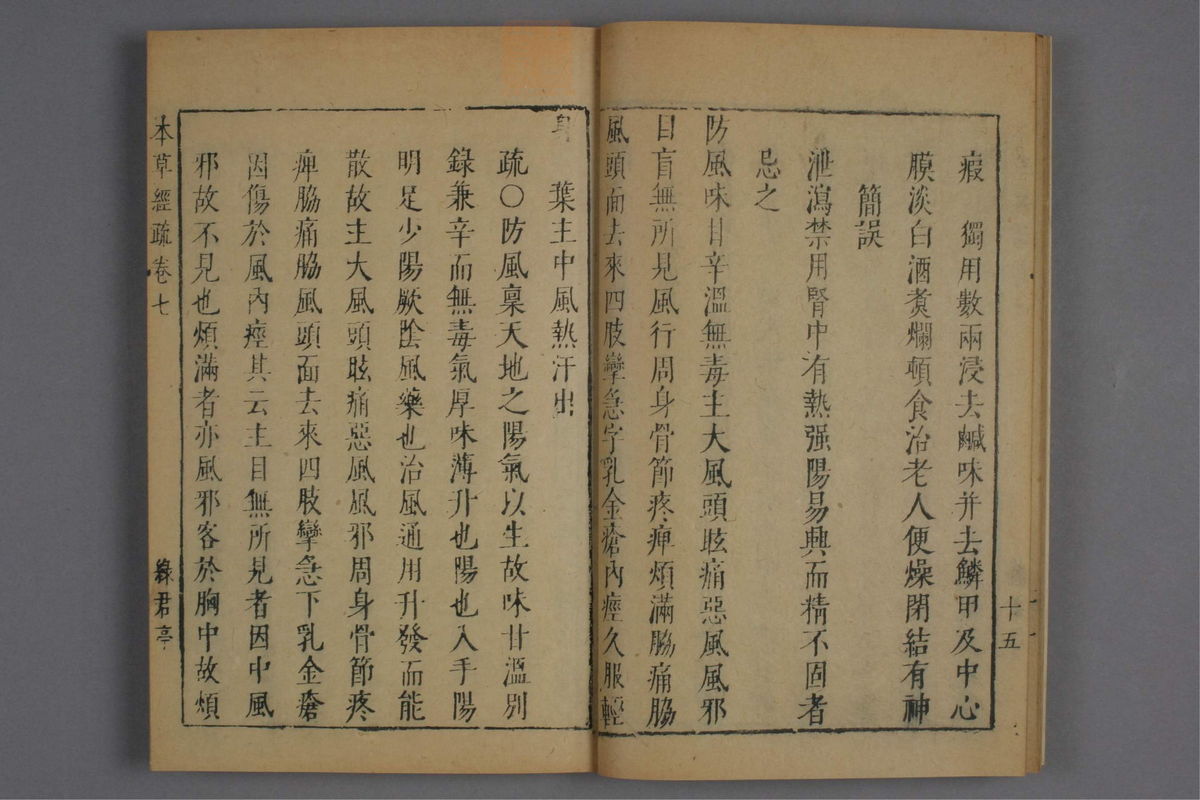 十五
瘕　獨用數兩浸去鹹味并去鱗甲及中心
膜淡白酒煑爛頓食治老人便燥閉結有神
簡誤
泄瀉禁用腎中有熱强陽易興而精不固者
忌之
防風味甘辛溫無毒主大風頭眩痛惡風風邪
目盲無所見風行周身骨節疼痺煩滿脇痛脇
風頭面去來四肢攣急字乳金瘡內痙久服輕
身　葉主中風熱汗出
疏〇防風稟天地之陽氣以生故味甘溫別
錄兼辛而無毒氣厚味薄升也陽也入手陽
明足少陽厥陰風藥也治風通用升發而能
散故主大風頭眩痛惡風風邪周身骨節疼
痺脇痛脇風頭面去來四肢攣急下乳金瘡
因傷於風內痙其云主目無所見者因中風
邪故不見也煩滿者亦風邪客於胸中故煩
本草經疏卷七
綠君亭